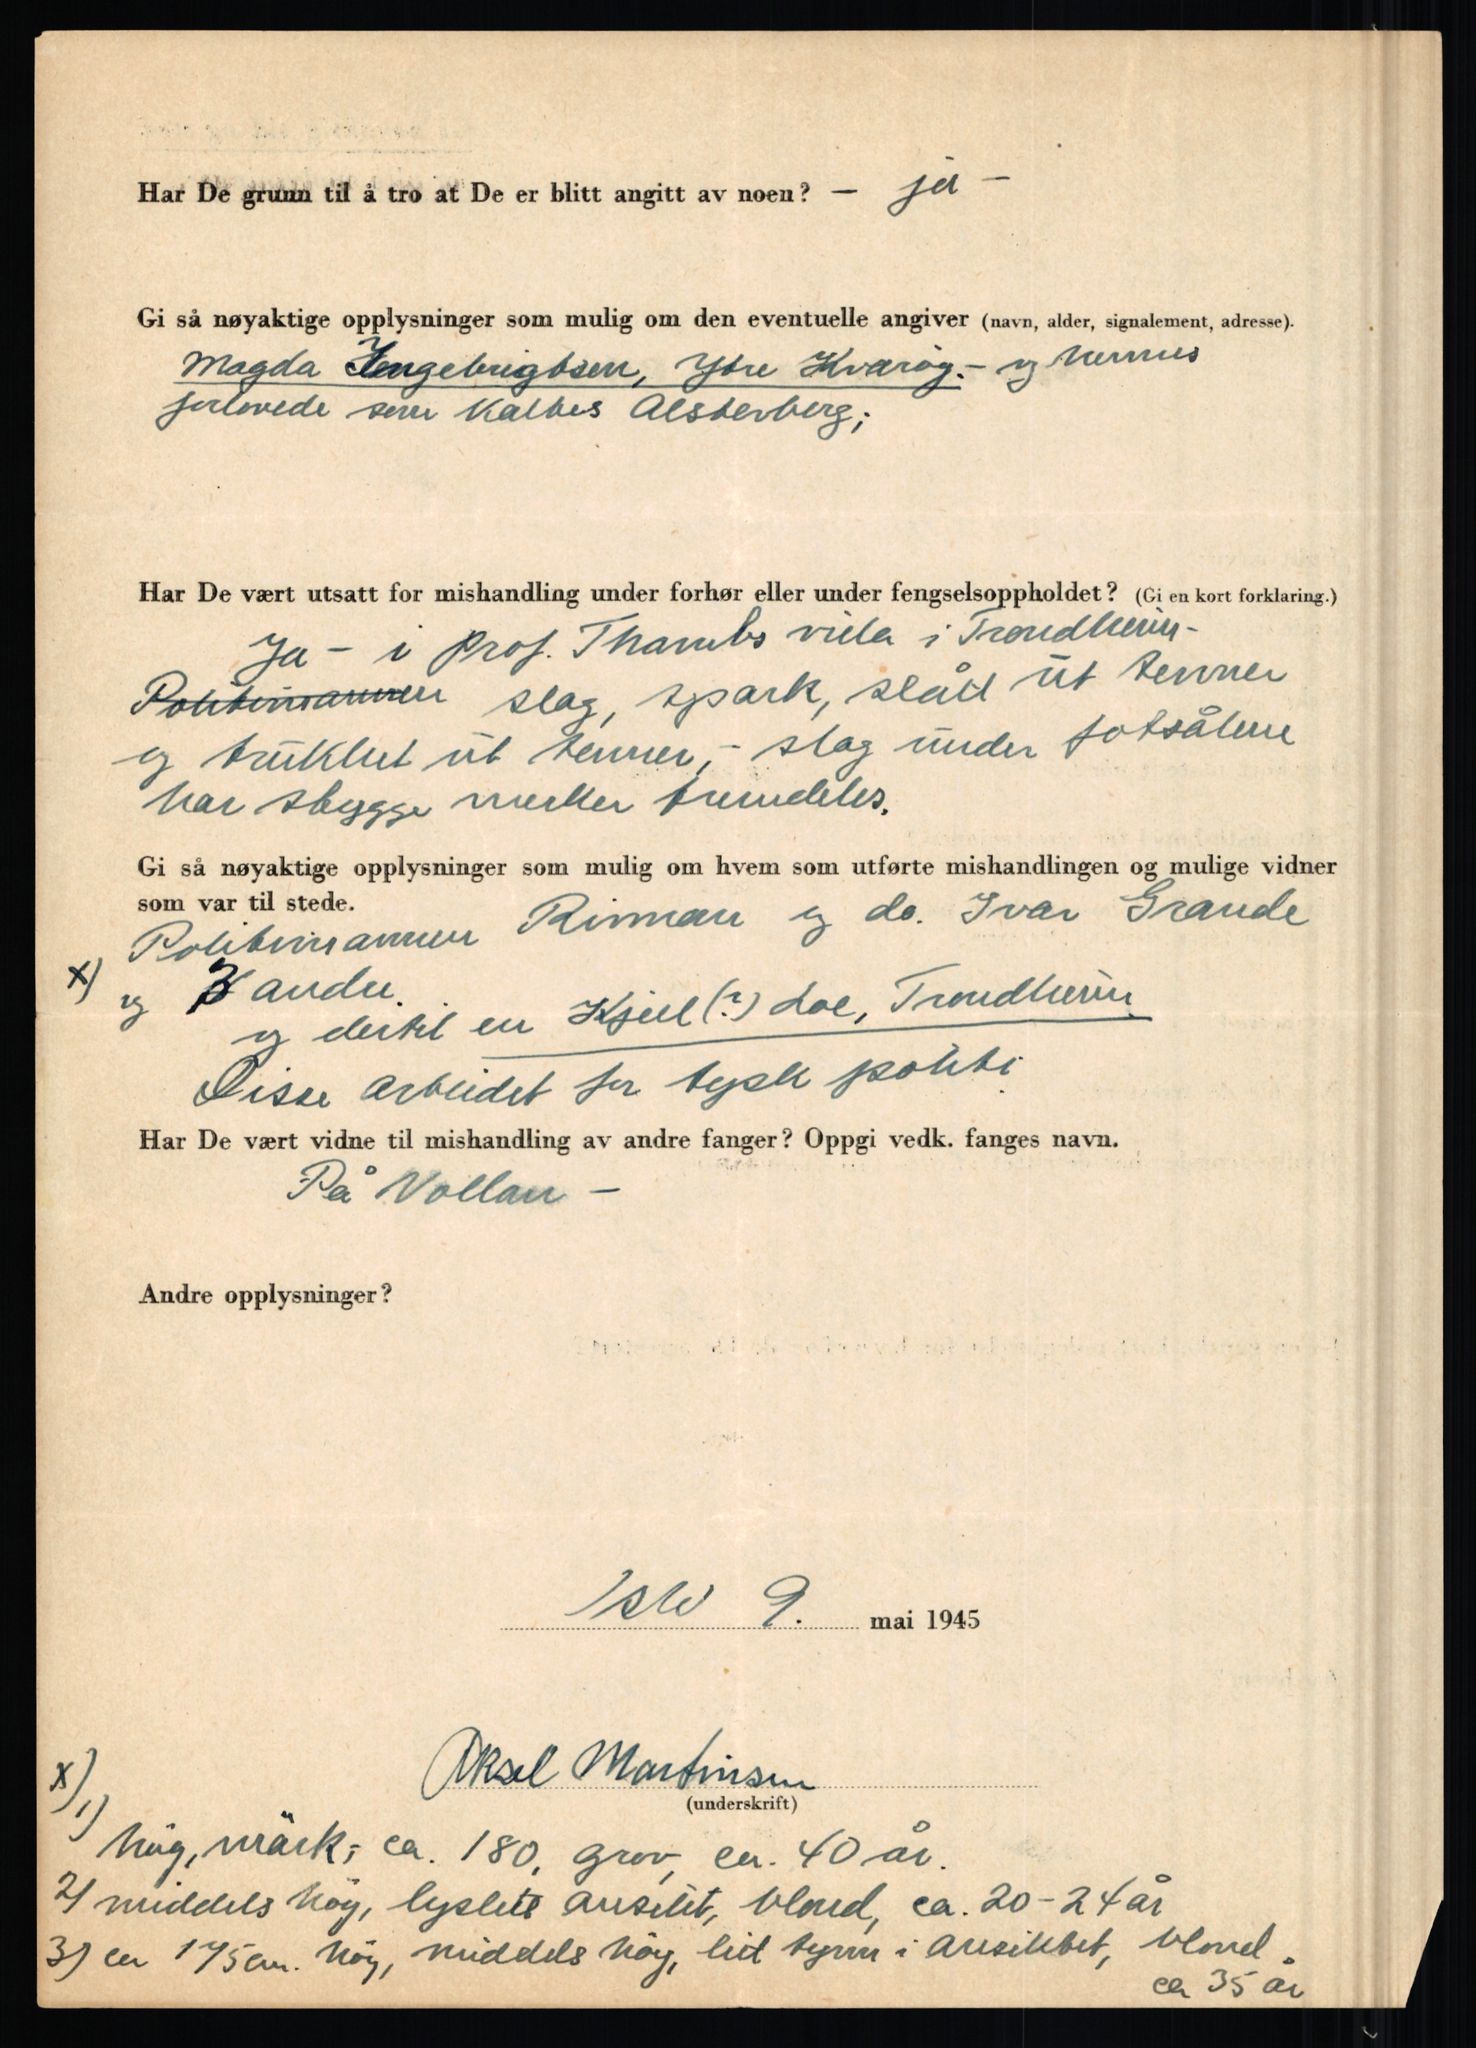 Har De grunn til å tro at De er blitt angitt av noen? — ja —
Gi så nøyaktige opplysninger som mulig om den eventuelle angiver (navn, alder, signalement, adresse).
Magda Ingebrigtsen, Ytre Kvarøy. – og hennes
forlovede som kaltes Alsterberg;
Har De vært utsatt for mishandling under forhør eller under fengselsoppholdet? (Gi en kort forklaring.)
Ja – i Prof. Thambs villa i Trondheim –
Politimannen slag, spark, slåd ut tenner
og trukket ut tenner, – slag under fotsålene
har stygge merker fremdeles.
Gi så nøyaktige opplysninger som mulig om hvem som utførte mishandlingen og mulige vidner
som var til stede.
Politimannen Rinnan og do. Ivar Grande
x) og 3 andre.
og dertil en Kjell (?) Loe, Trondheim
Disse arbeidet for tysk politi
Har De vært vidne til mishandling av andre fanger? Oppgi vedk. fanges navn.
På Vollan –
Andre opplysninger?
9. mai 1945
Aksel Martinsen
(underskrift)
x) 1)
høg, mørk, ca. 180, grov, ca. 40 år.
2) middels høg, ansikt, blond, ca. 20–24 år
3) ca 175 cm. høg, middels høg, litt tynn i ansiktet, blond.
ca 35 år